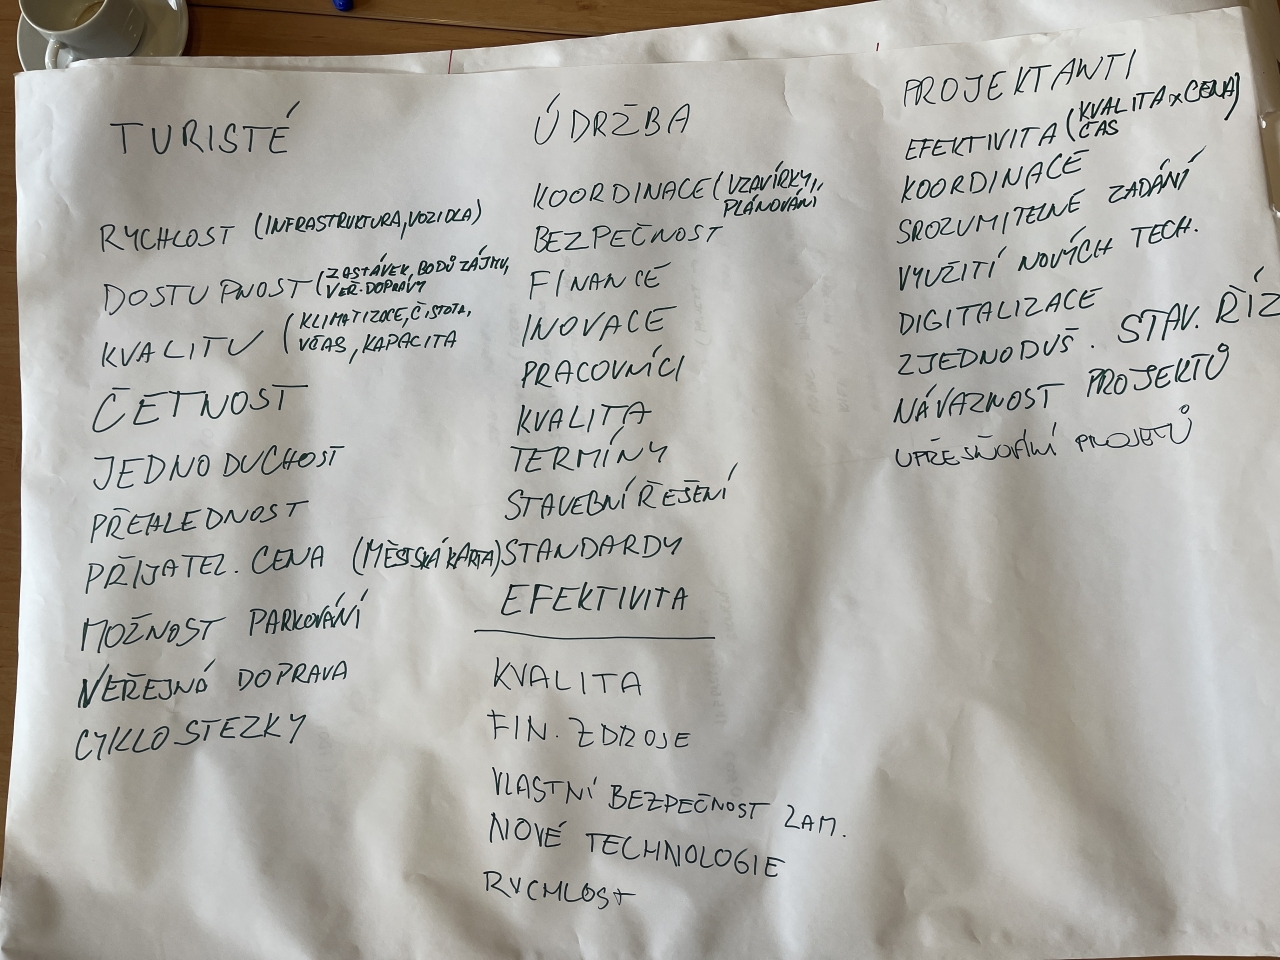 TURISTÉ
RYCHLOST (INFRASTRUKTURA, VOZIDLA)
DOSTUPNOST (ZASTÁVEK, BODŮ ZÁJMU,
VEŘ. DOPRAVY
KVALITU (KLIMATIZACE, ČISTOTA,
VČAS, KAPACITA
ČETNOST
JEDNODUCHOST
PŘEHLEDNOST
PŘIJATEL. CENA (MĚSTSKÁ KARTA)
MOŽNOST PARKOVÁNÍ
VEŘEJNÁ DOPRAVA
CYKLOSTEZKY
ÚDRŽBA
KOORDINACE (UZAVÍRKY,
PLÁNOVÁNÍ
BEZPEČNOST
FINANCE
INOVACE
PRACOVNÍCI
KVALITA
TERMÍNY
STAVEBNÍ ŘEŠENÍ
STANDARDY
EFEKTIVITA
KVALITA
FIN. ZDROJE
VLASTNÍ BEZPEČNOST ZAM.
NOVÉ TECHNOLOGIE
RYCHLOST
PROJEKTANTI
EFEKTIVITA (KVALITA x CENA)
ČAS
KOORDINACE
SROZUMITELNÉ ZADÁNÍ
VYUŽITÍ NOVÝCH TECH.
DIGITALIZACE
ZJEDNODUŠ. STAV. ŘÍZ
NÁVAZNOST PROJEKTŮ
PROJETŮ